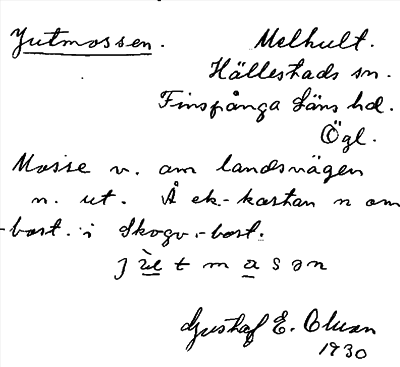 Jutmossen.
Melhult.
Hällestads sn.
Finspånga läns hd.
Ögl.
Mosse v. om landsvägen
n. ut. Å ek.-kartan n om
-bost. i Skogv.-bost.
j ù t m a s ə n
Gustaf E. Olsson
1930